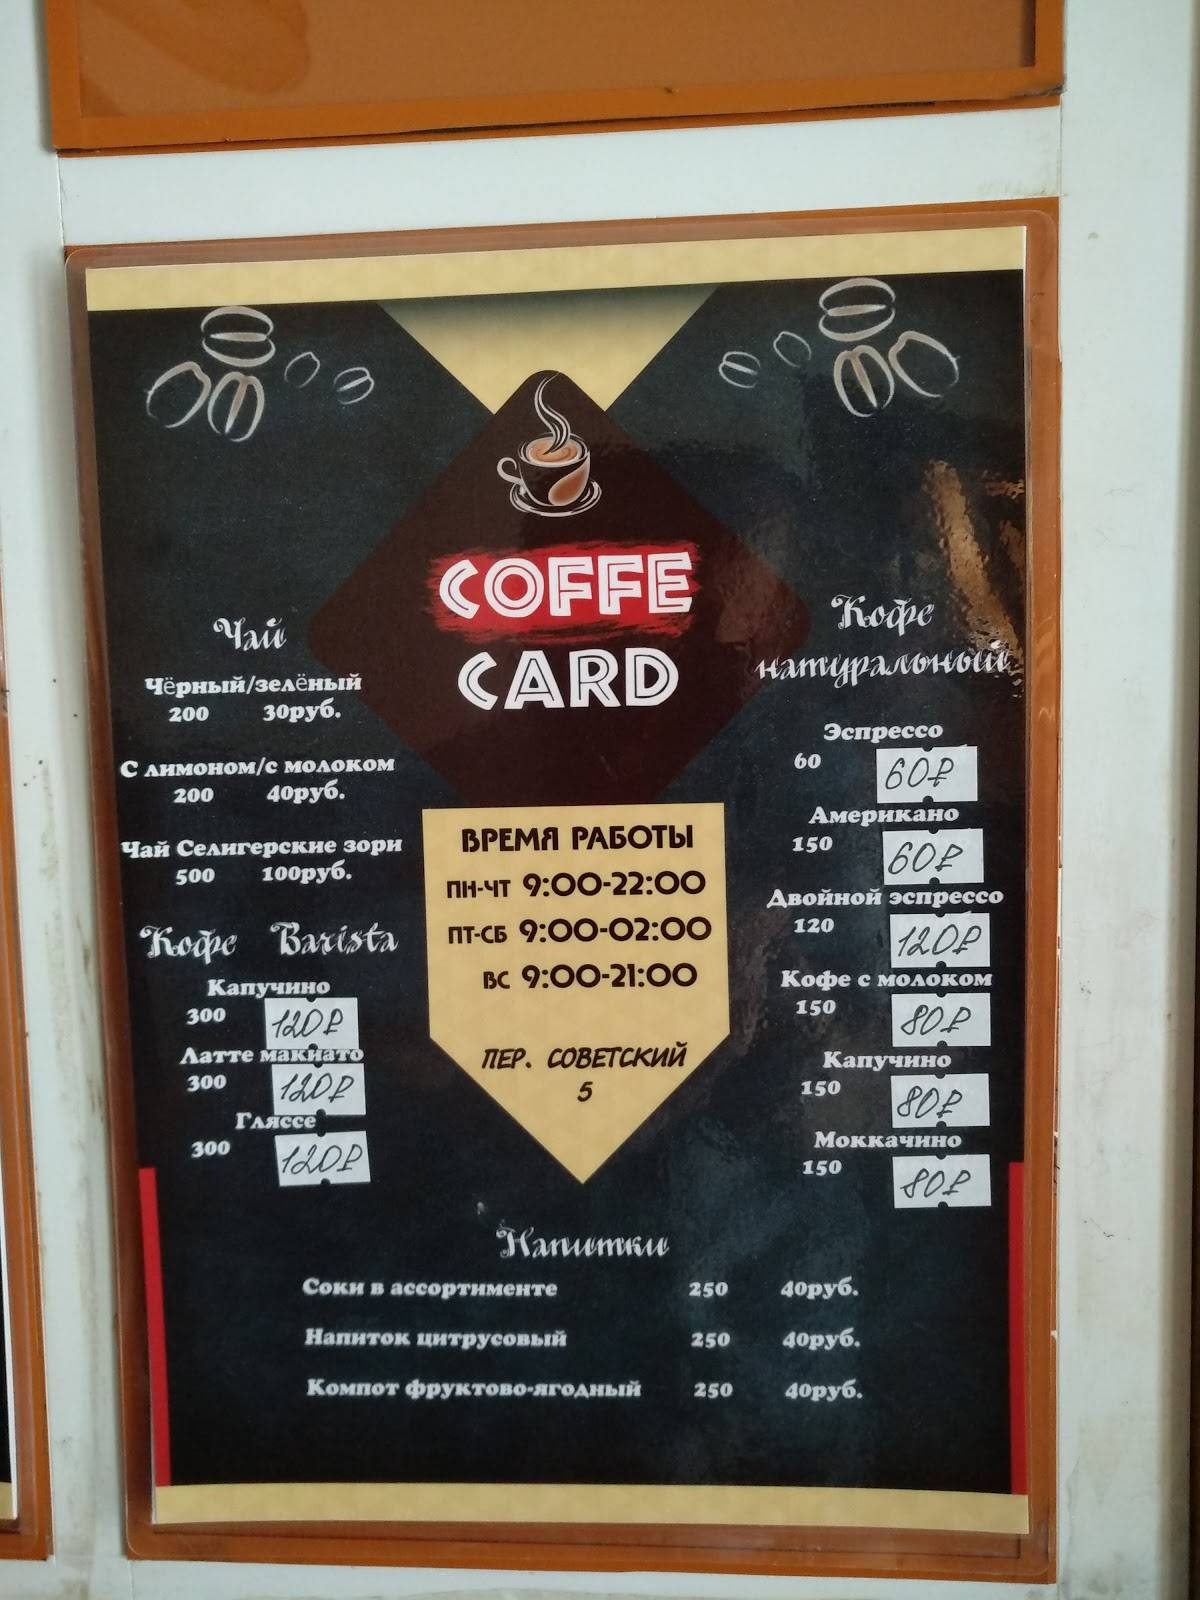 COFFE
CARD
Чай
Чёрный/зелёный
200 30руб.
С лимоном/с молоком
200 40руб.
Чай Селигерские зори
500 100руб.
Кофе Barista
Капучино
300 120₽
Латте макиато
300 120₽
Гляссе
300 120₽
ВРЕМЯ РАБОТЫ
ПН-ЧТ 9:00-22:00
ПТ-СБ 9:00-02:00
ВС 9:00-21:00
ПЕР. СОВЕТСКИЙ
5
Кофе
натуральный
Эспрессо
60 60₽
Американо
150 60₽
Двойной эспрессо
120 120₽
Кофе с молоком
150 80₽
Капучино
150 80₽
Моккачино
150 80₽
Напитки
Соки в ассортименте 250 40руб.
Напиток цитрусовый 250 40руб.
Компот фруктово-ягодный 250 40руб.